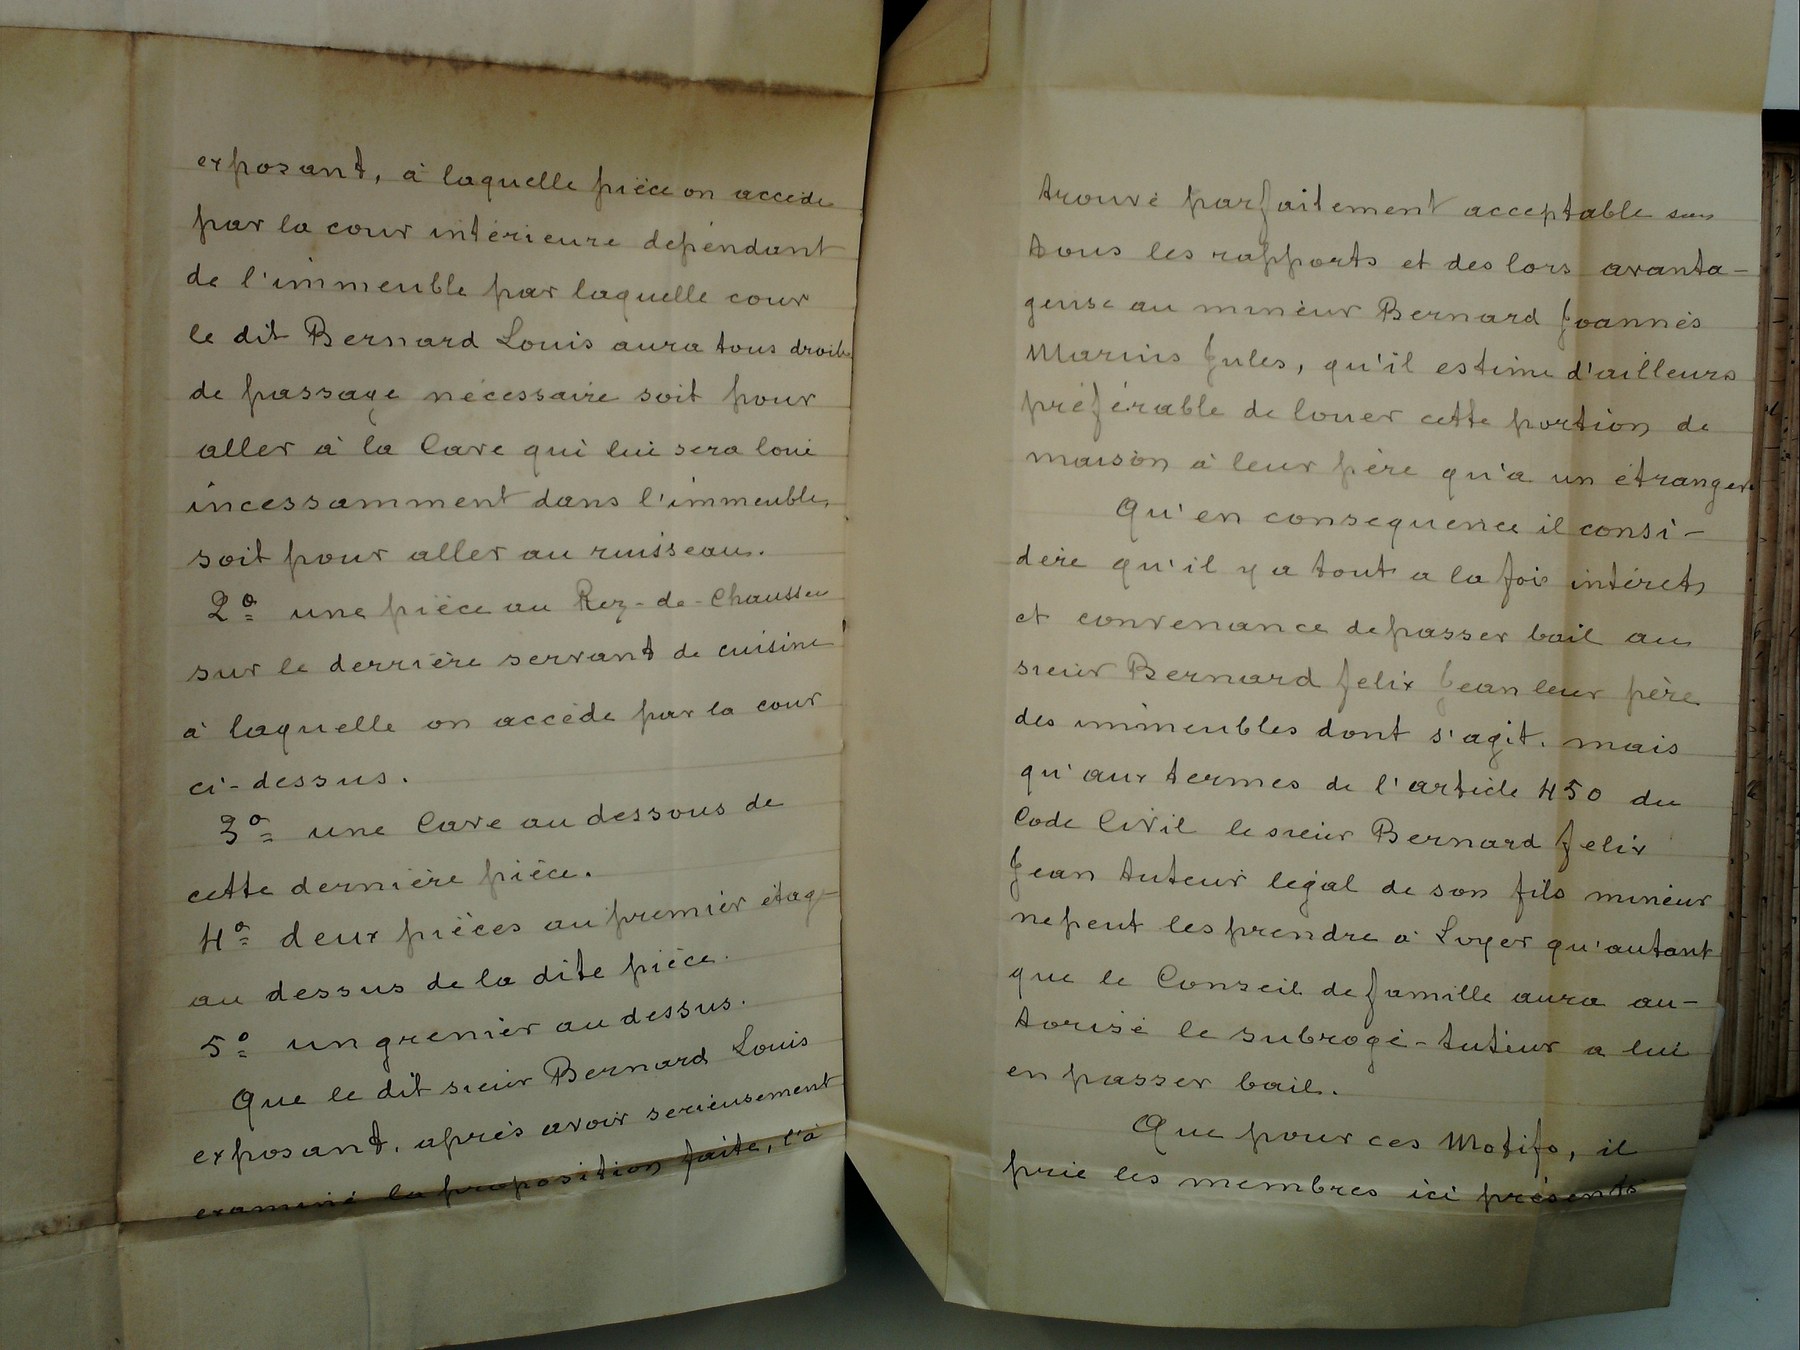 exposant, à laquelle pièce on accède
par la cour intérieure dépéndant
de l'immeuble par laquelle cour
le dit Bernard Louis aura tous droits
de passage nécessaire soit pour
aller à la Cave qui lui sera loué
incessamment dans l'immeuble,
soit pour aller au ruisseau.
2º une pièce au Rez-de-Chaussée
sur le derrière servant de cuisine
à laquelle on accède par la cour
ci-dessus.
3º une Cave au dessous de
cette dernière pièce.
4º deux pièces au premier étage
au dessus de la dite pièce.
5º un grenier au dessus.
Que le dit sieur Bernard Louis
exposant, après avoir serieusement
examiné la proposition faite, l'a
trouvé parfaitement acceptable sous
tous les rapports et des lors avanta-
geuse au mineur Bernard Joannès
Marius Jules, qu'il estime d'ailleurs
préférable de louer cette portion de
maison à leur père qu'a un étranger.
Qu'en consequence il consi-
dère qu'il y a tout a la fois intérêt
et convenance de passer bail au
sieur Bernard Felix Jean leur père
des immeubles dont s'agit. mais
qu'aux termes de l'article 450 du
Code Civil le sieur Bernard Felix
Jean tuteur légal de son fils mineur
ne peut les prendre à Loyer qu'autant
que le Conseil de famille aura au-
torisé le subrogé-tuteur a lui
en passer bail.
Que pour ces Motifs, il
prie les membres ici présents